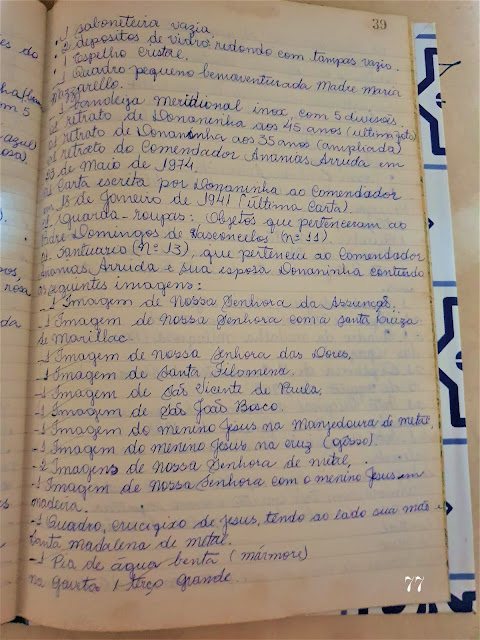 39
- 1 saboniteira vazia.
- 2 depositos de vidro, redondo com tampas vazio.
- 1 Espelho cristal.
- 1 Quadro pequeno bemaventurada Madre Maria
Mazzarello.
1 candeia meridional inox, com 5 divisões.
01 retrato de Donaninha aos 45 anos (ultima foto)
01 retrato de Donaninha aos 35 anos (ampliada)
01 retrato do Comendador Ananias Arruda em
23 de Maio de 1974.
01 Carta escrita por Donaninha ao Comendador
em 18 de janeiro de 1941 (última Carta).
01 guarda-roupas: Objetos que pertenceram ao
Padre Domingos de Vasconcelos (nº 11).
01 Santuario (Nº 13), que pertenceu ao Comendador
Ananias Arruda e sua esposa Donaninha contendo
as seguintes imagens:
- 1 Imagem de Nossa Senhora da Assunção.
- 1 Imagem de Nossa Senhora com a Santa Luiza
de Marillac
- 1 Imagem de nossa Senhora das Dores,
- 1 Imagem de Santa Filomena
- 1 Imagem de São Vicente de Paula,
- 1 Imagem de São João Bosco.
- 1 Imagem do menino Jesus na Manjedoura de metre,
- 1 Imagem do menino Jesus na cruz (gêsso)
- 2 Imagens de Nossa Senhora de metre,
- 1 Imagem de Nossa Senhora com o menino Jesus em
madeira.
- 1 Quadro, crucifixo de Jesus, tendo ao lado sua mãe e
Santa madalena de metre.
- 1 Pia de água benta (mármore)
na gaveta 1 terço grande.
77